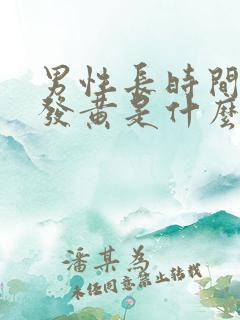 男性長時間
發黃是什麼
潘某為
未經同意禁止轉載